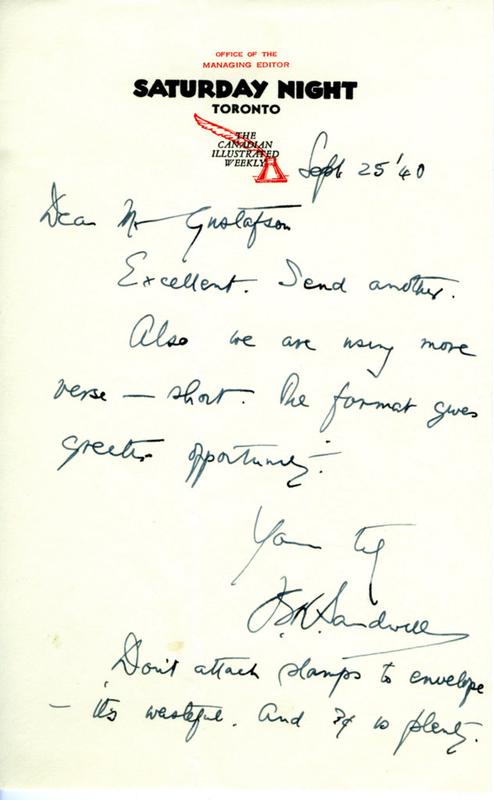 OFFICE OF THE
MANAGING EDITOR
SATURDAY NIGHT
TORONTO
THE
CANADIAN
ILLUSTRATED
WEEKLY
Sept 25 '40
Dear Mr Gustafson
Excellent. Send another.
Also we are using more
verse — short. The format gives
greater opportunity.
Yours
B.K. Sandwell
Don't attach stamps to envelope
— it's wasteful. And 3¢ is plenty.